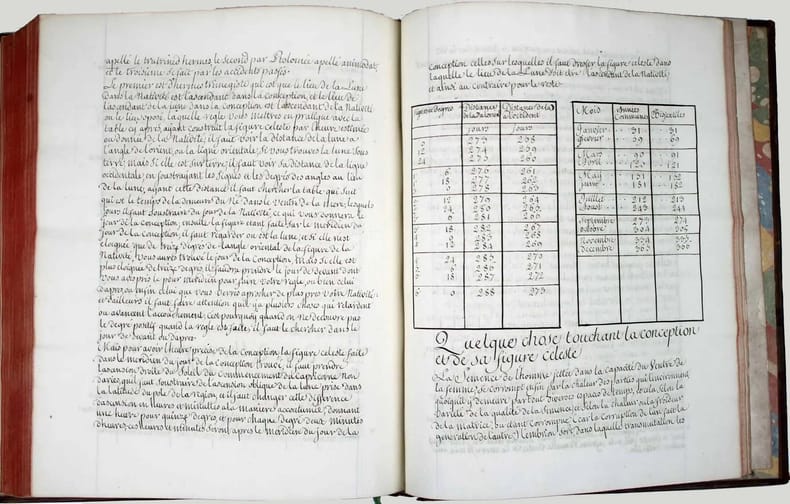 apellé le trutrimé hermes, le second par Ptolomée apellé animodat,
et le troisième se fait par les accidents passés.
Le premier est d'hermes trimegiste qui est que le lieu de la Lune
dans la Nativité est l'ascendant dans la conception, et le lieu de
l'ascendant de la lune dans la conception est l'ascendant de la Nativité
ou le lieu oposé, laquelle regle vous metres en pratique avec la
table cy apres, ayant construit la figure celeste par l'heure estimée
ou donnée de la Nativité, il faut voir la distance de la lune a
l'angle de lorient, ou la ligne orientale, si vous trouves la lune sous
terre, mais si elle est sur terre, il faut voir sa distance de la ligne
occidentale, en soustrayant les signes et les degrés des angles au lieu
de la lune, ayant cette distance il faut chercher la table qui suit
qui est le temps de la demeure du Né dans le ventre de la mere, lesquels
jours il faut soustraire du jour de la Nativité, ce qui vous donnera le
jour de la conception, ensuite la figure etant faite sur le meridien du
jour de la conception, il faut regarder ou est la lune, et si elle n'est
eloignée que de treize degrés de l'angle oriental de la figure de la
Nativité, vous aurés trouvé le jour de la Conception, mais si elle est
plus eloignée de treize degrés, il faudra prendre le jour de devant dont
vous avés pris le jour de meridien pour faire votre regle, ou bien celui
d'apres, ou enfin celui que vous verrés aprocher de plus pres votre Nativité,
et d'ailleurs il faut faire attention qu'il y a plusieurs choses qui retardent
ou avancent l'accouchement, c'est pourquoy quand on ne decouvre pas
le degré positif quand la regle est faite, il faut le chercher dans le
jour de devant ou d'apres.
Mais pour avoir l'heure precise de la conception, la figure celeste faite
dans le meridien du jour de la Conception trouvé, il faut prendre
l'ascension droite du Soleil du Commencement du Capricorne non
d'aries, qu'il faut soustraire de l'ascension oblique de la lune prise dans
la latitude du pole de la region, et il faut changer cette difference
d'ascension en heures et minutes a la maniere accoutumée, donnant
une heure pour quinze degrés, et pour chaque degré deux minutes
d'heures, ces heures et minutes seront apres le meridien du jour de la
conception celles sur lesquelles il faut dresser la figure celeste dans
laquelle le lieu de la Lune doit etre l'ascendant de la Nativité
et ainsi au contraire pour le reste
Distance de la Distance de la
jours jours
0 273 258
274 259
24 275 260
6 276 261
18 277 262
0 278 263
12 279 264
24 280 265
6 281 266
18 282 267
283 268
12 284 269
24 285 270
6 286 271
18 287 272
6 0 288 273
Mois Années Communes Bisextiles
Janvier 31 31
fevrier 59 60
Mars 90 91
Avril 120 121
May 151 152
juin 181 182
Juillet 212 213
Aoust 243 244
Septembre 273 274
octobre 304 305
Novembre 334 335
decembre 365 366
Quelque chose touchant la conception
et de sa figure celeste
La Semence de l'homme jettée dans la capacité du Ventre de
la femme, se corrompt enfin par la chaleur des parties qui l'environnent,
quoiqu'il y demeure par tout divers espaces de temps, et cela selon la
varieté de la qualité de la semence, et selon la chaleur ou la froideur
de la Matrice, ou etant corrompue (car la corruption de l'un fait la
generation de l'autre) l'embrion sort, dans laquelle transmutation les